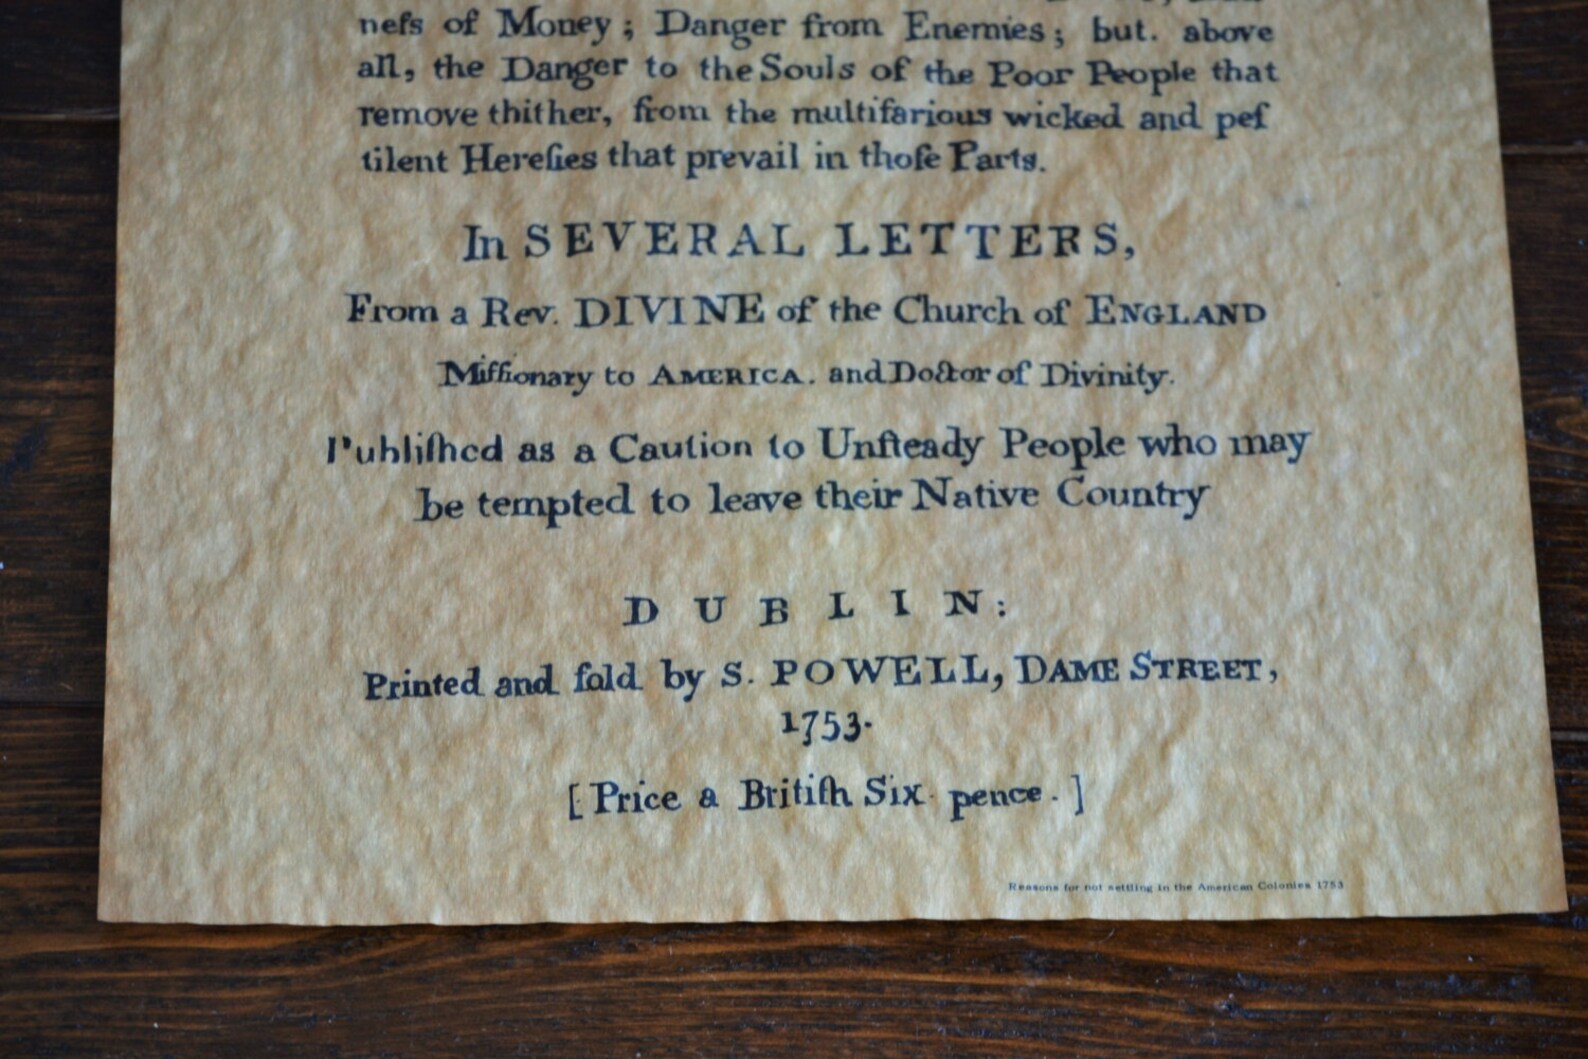 neſs of Money; Danger from Enemies; but. above
all, the Danger to the Souls of the Poor People that
remove thither, from the multifarious wicked and peſ
tilent Hereſies that prevail in thoſe Parts.
In SEVERAL LETTERS,
From a Rev. DIVINE of the Church of ENGLAND
Miſſionary to AMERICA. and Doctor of Divinity.
Publiſhed as a Caution to Unſteady People who may
be tempted to leave their Native Country
DUBLIN:
Printed and ſold by S. POWELL, DAME STREET,
1753.
[Price a Britiſh Six pence.]
Reasons for not settling in the American Colonies 1753